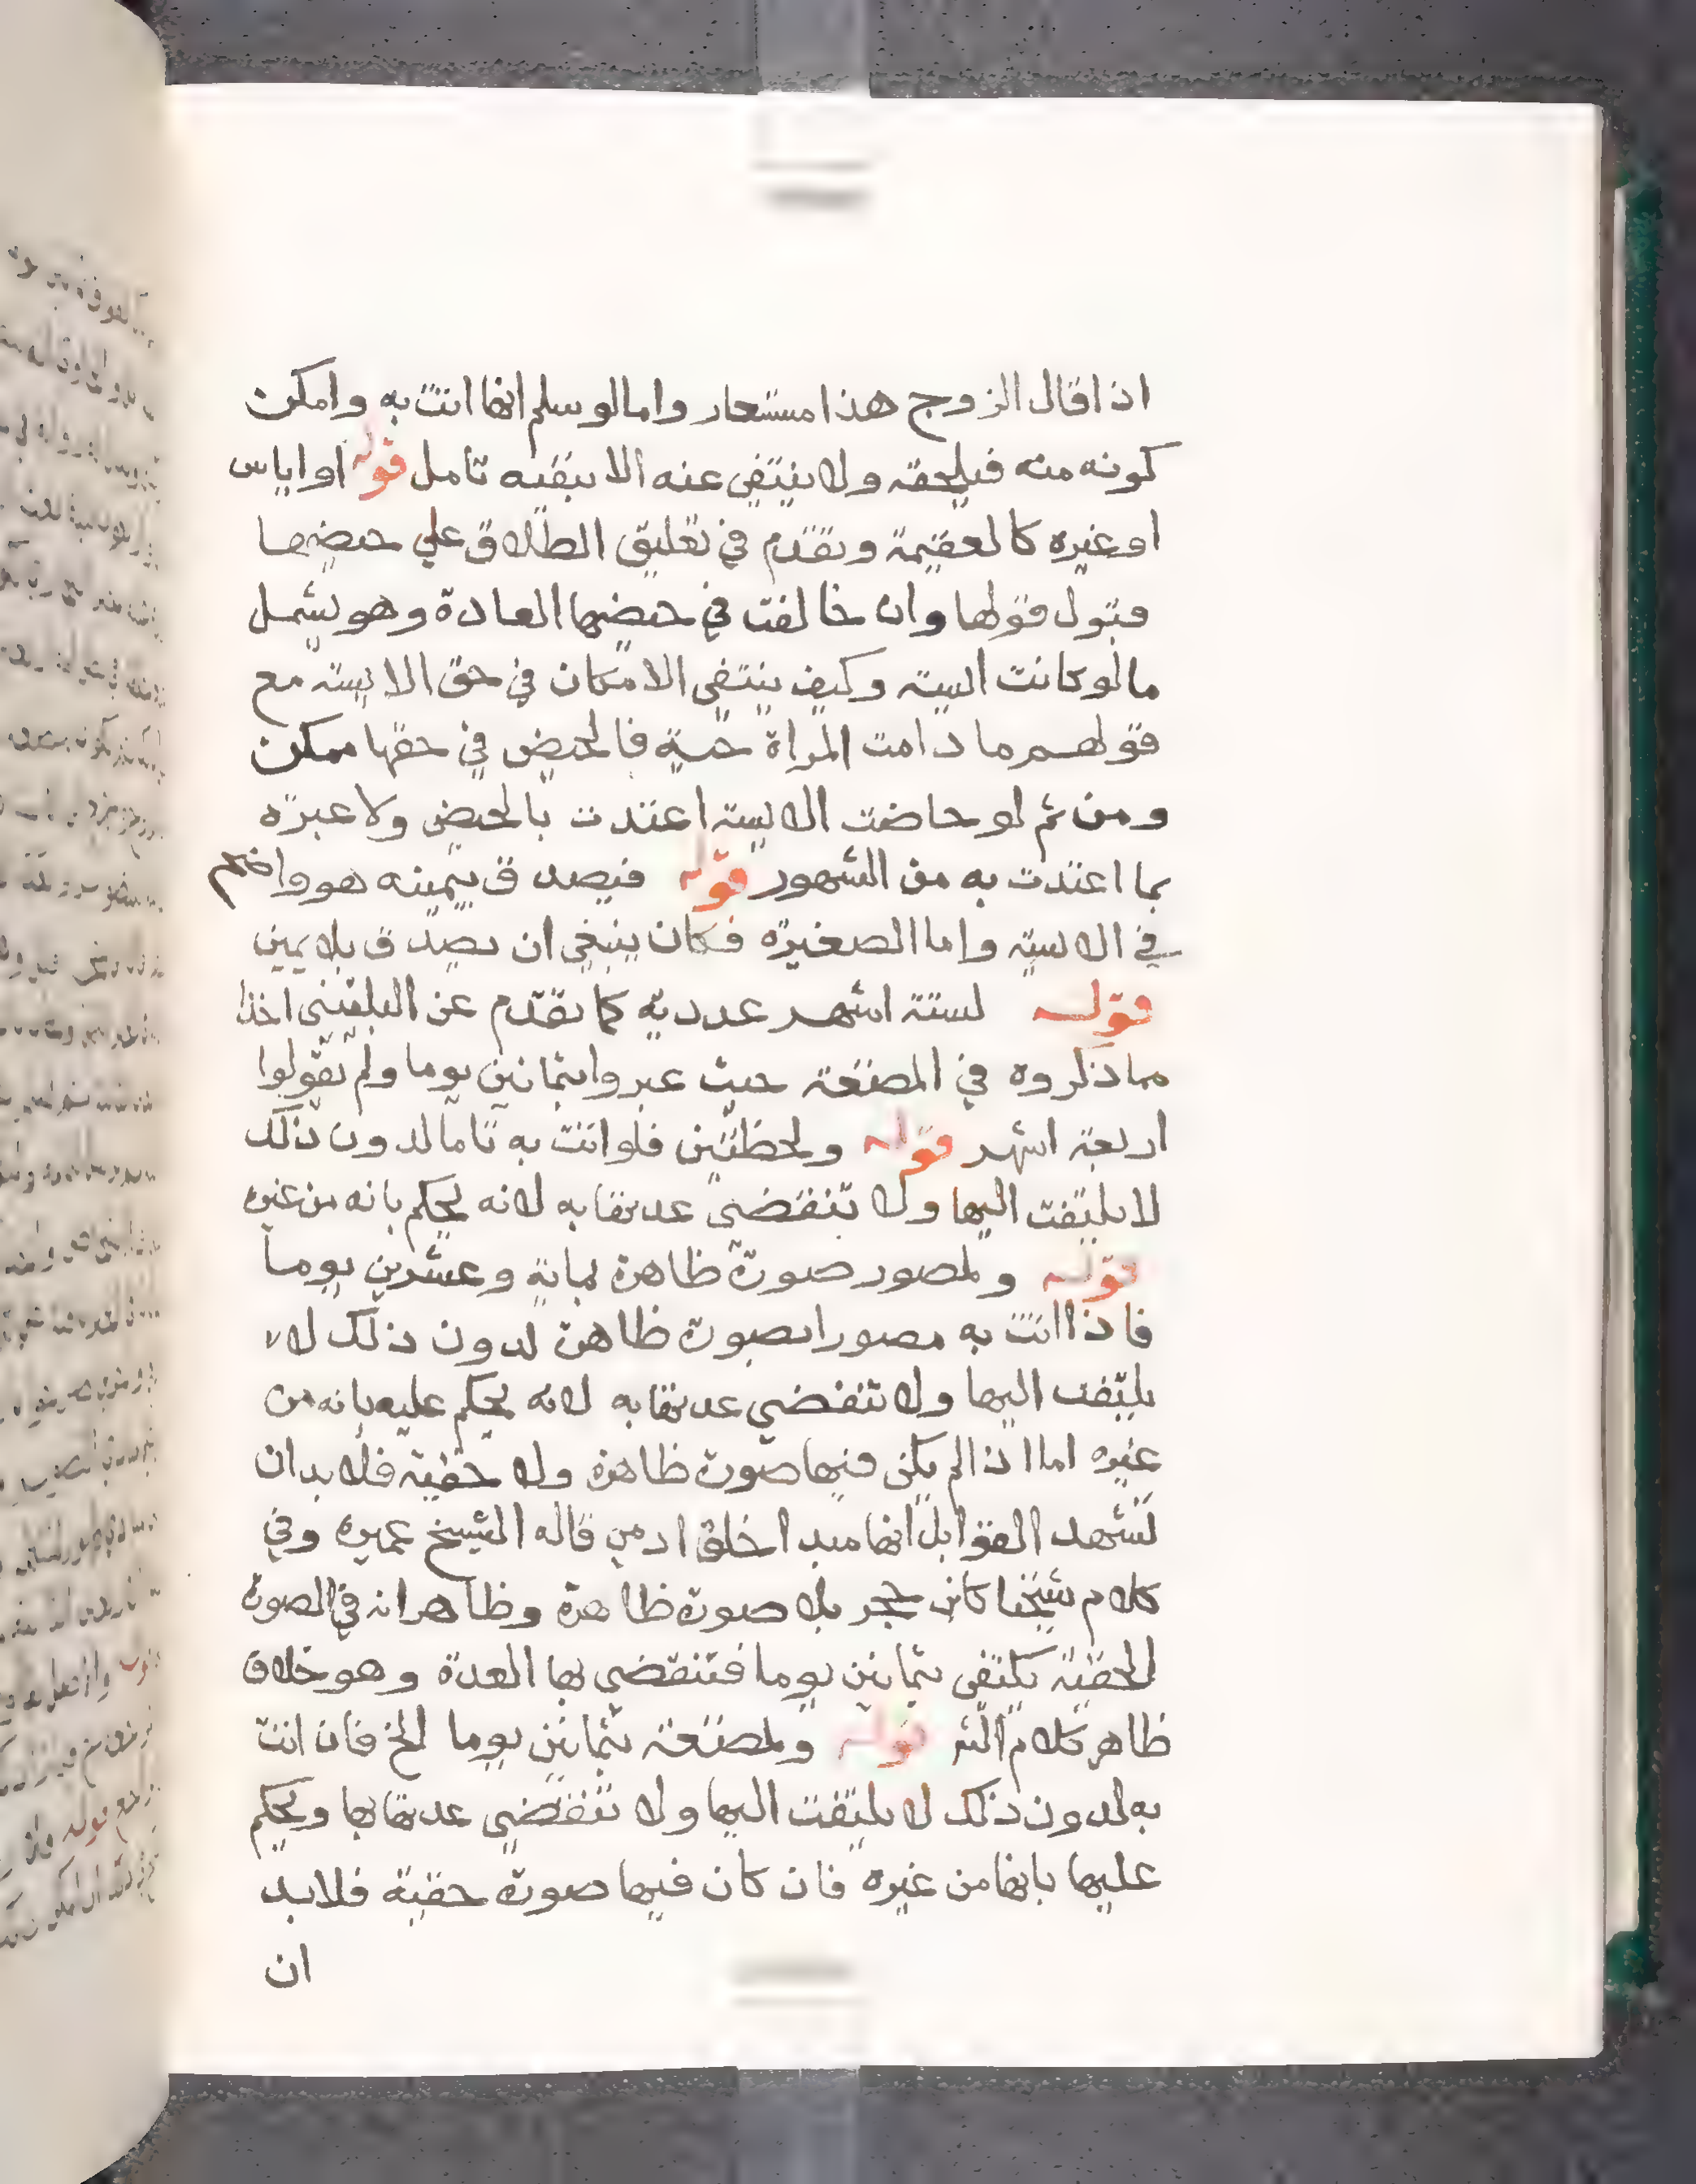 اذا قال الزوج هذا مستعار واما لو سلم انها اتت به وامكن
كونه منه فيلحقه ولا ينتفي عنه الا بنفيه تامل قوله او اياس
او غيره كالعقيمة وتقدم في تعليق الطلاق علي حيضها
قبول قولها وان خالفت في حيضها العادة وهو يشمل
ما لو كانت ايسة وكيف ينتفي الامكان في حق الايسة مع
قولهم ما دامت المراة حية فالحيض في حقها ممكن
ومن ثم لو حاضت الايسة اعتدت بالحيض ولا عبرة
بما اعتدت به من الشهور قوله فيصدق بيمينه هو واضح
في الايسة واما الصغيرة فكان ينبغي ان يصدق بلا يمين
قوله لستة اشهر عددية كما تقدم عن البلقيني اخذا
مما ذكروه في المضغة حيث عبروا بثمانين يوما ولم يقولوا
اربعة اشهر قوله ولحظتين فلو اتت به تاما لدون ذلك
لا يلتفت اليها ولا تنقضي عدتها به لانه يحكم بانه من غيره
قوله ولمصور صورة ظاهرة بماية وعشرين يوما
فاذا اتت به مصورا بصورة ظاهرة لدون ذلك لا
يلتفت اليها ولا تنقضي عدتها به لانه يحكم عليه بانه من
غيره اما اذا لم يكن فيها صورة ظاهرة ولا خفية فلا بد ان
تشهد القوابل انها مبدا خلق ادمي قاله الشيخ عميره وفي
كلام شيخنا كابن حجر بلا صورة ظاهرة وظاهر انه في الصورة
الخفية يكتفى بثمانين يوما فتنقضي بها العدة وهو خلاف
ظاهر كلام الش قوله ولمضغة بثمانين يوما الخ فان اتت
به لدون ذلك لا يلتفت اليها ولا تنقضي عدتها بها ويحكم
عليها بانها من غيره فان كان فيها صورة خفية فلا بد
ان